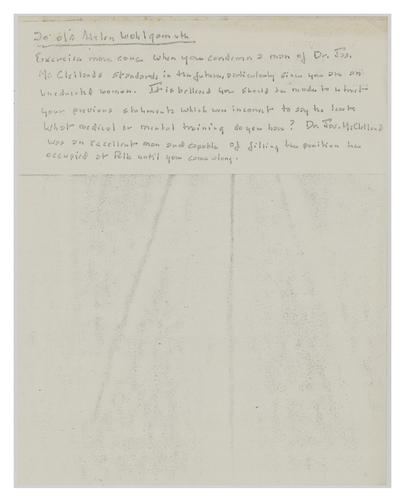 To: o/o Helen Wohlgamuth
Exercise more care when you condemn a man of Dr. Jas.
McClelland's standards in the future, particularly since you are an
uneducated woman. It is believed you should be made to retract
your previous statements which were incorrect to say the least
What medical or mental training do you have? Dr. Jas. McClelland
was an excellent man and capable of filling the position he
occupied at Polk until you came along.